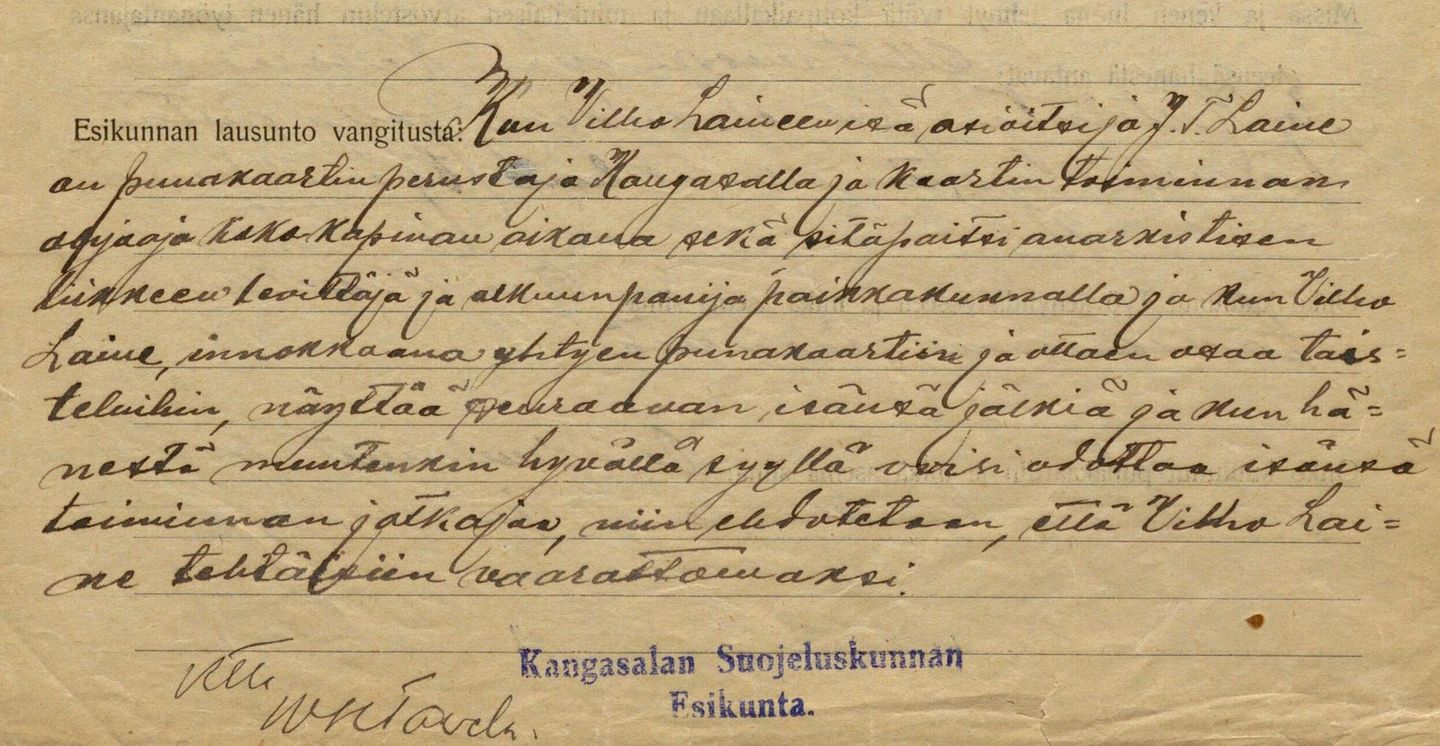 Esikunnan lausunto vangitusta: Kun Vilho Laineen isä asioitsija J. T. Laine
on punakaartin perustaja Kangasalla ja kaartin toiminnan
ohjaaja koko kapinan aikana sekä sitäpaitsi anarkistisen
liikkeen levittäjä ja alkuunpanija paikkakunnalla ja kun Vilho
Laine, innokkaana yhtyen punakaartiin ja ottaen osaa tais=
teluihin, näyttää seuraavan isänsä jälkiä ja kun hä=
nestä muutenkin hyvällä syyllä voisi odottaa isänsä
toiminnan jatkajaa, niin ehdotetaan, että Vilho Lai=
ne tehtäisiin vaarattomaksi.
Kangasalan Suojeluskunnan
Esikunta.